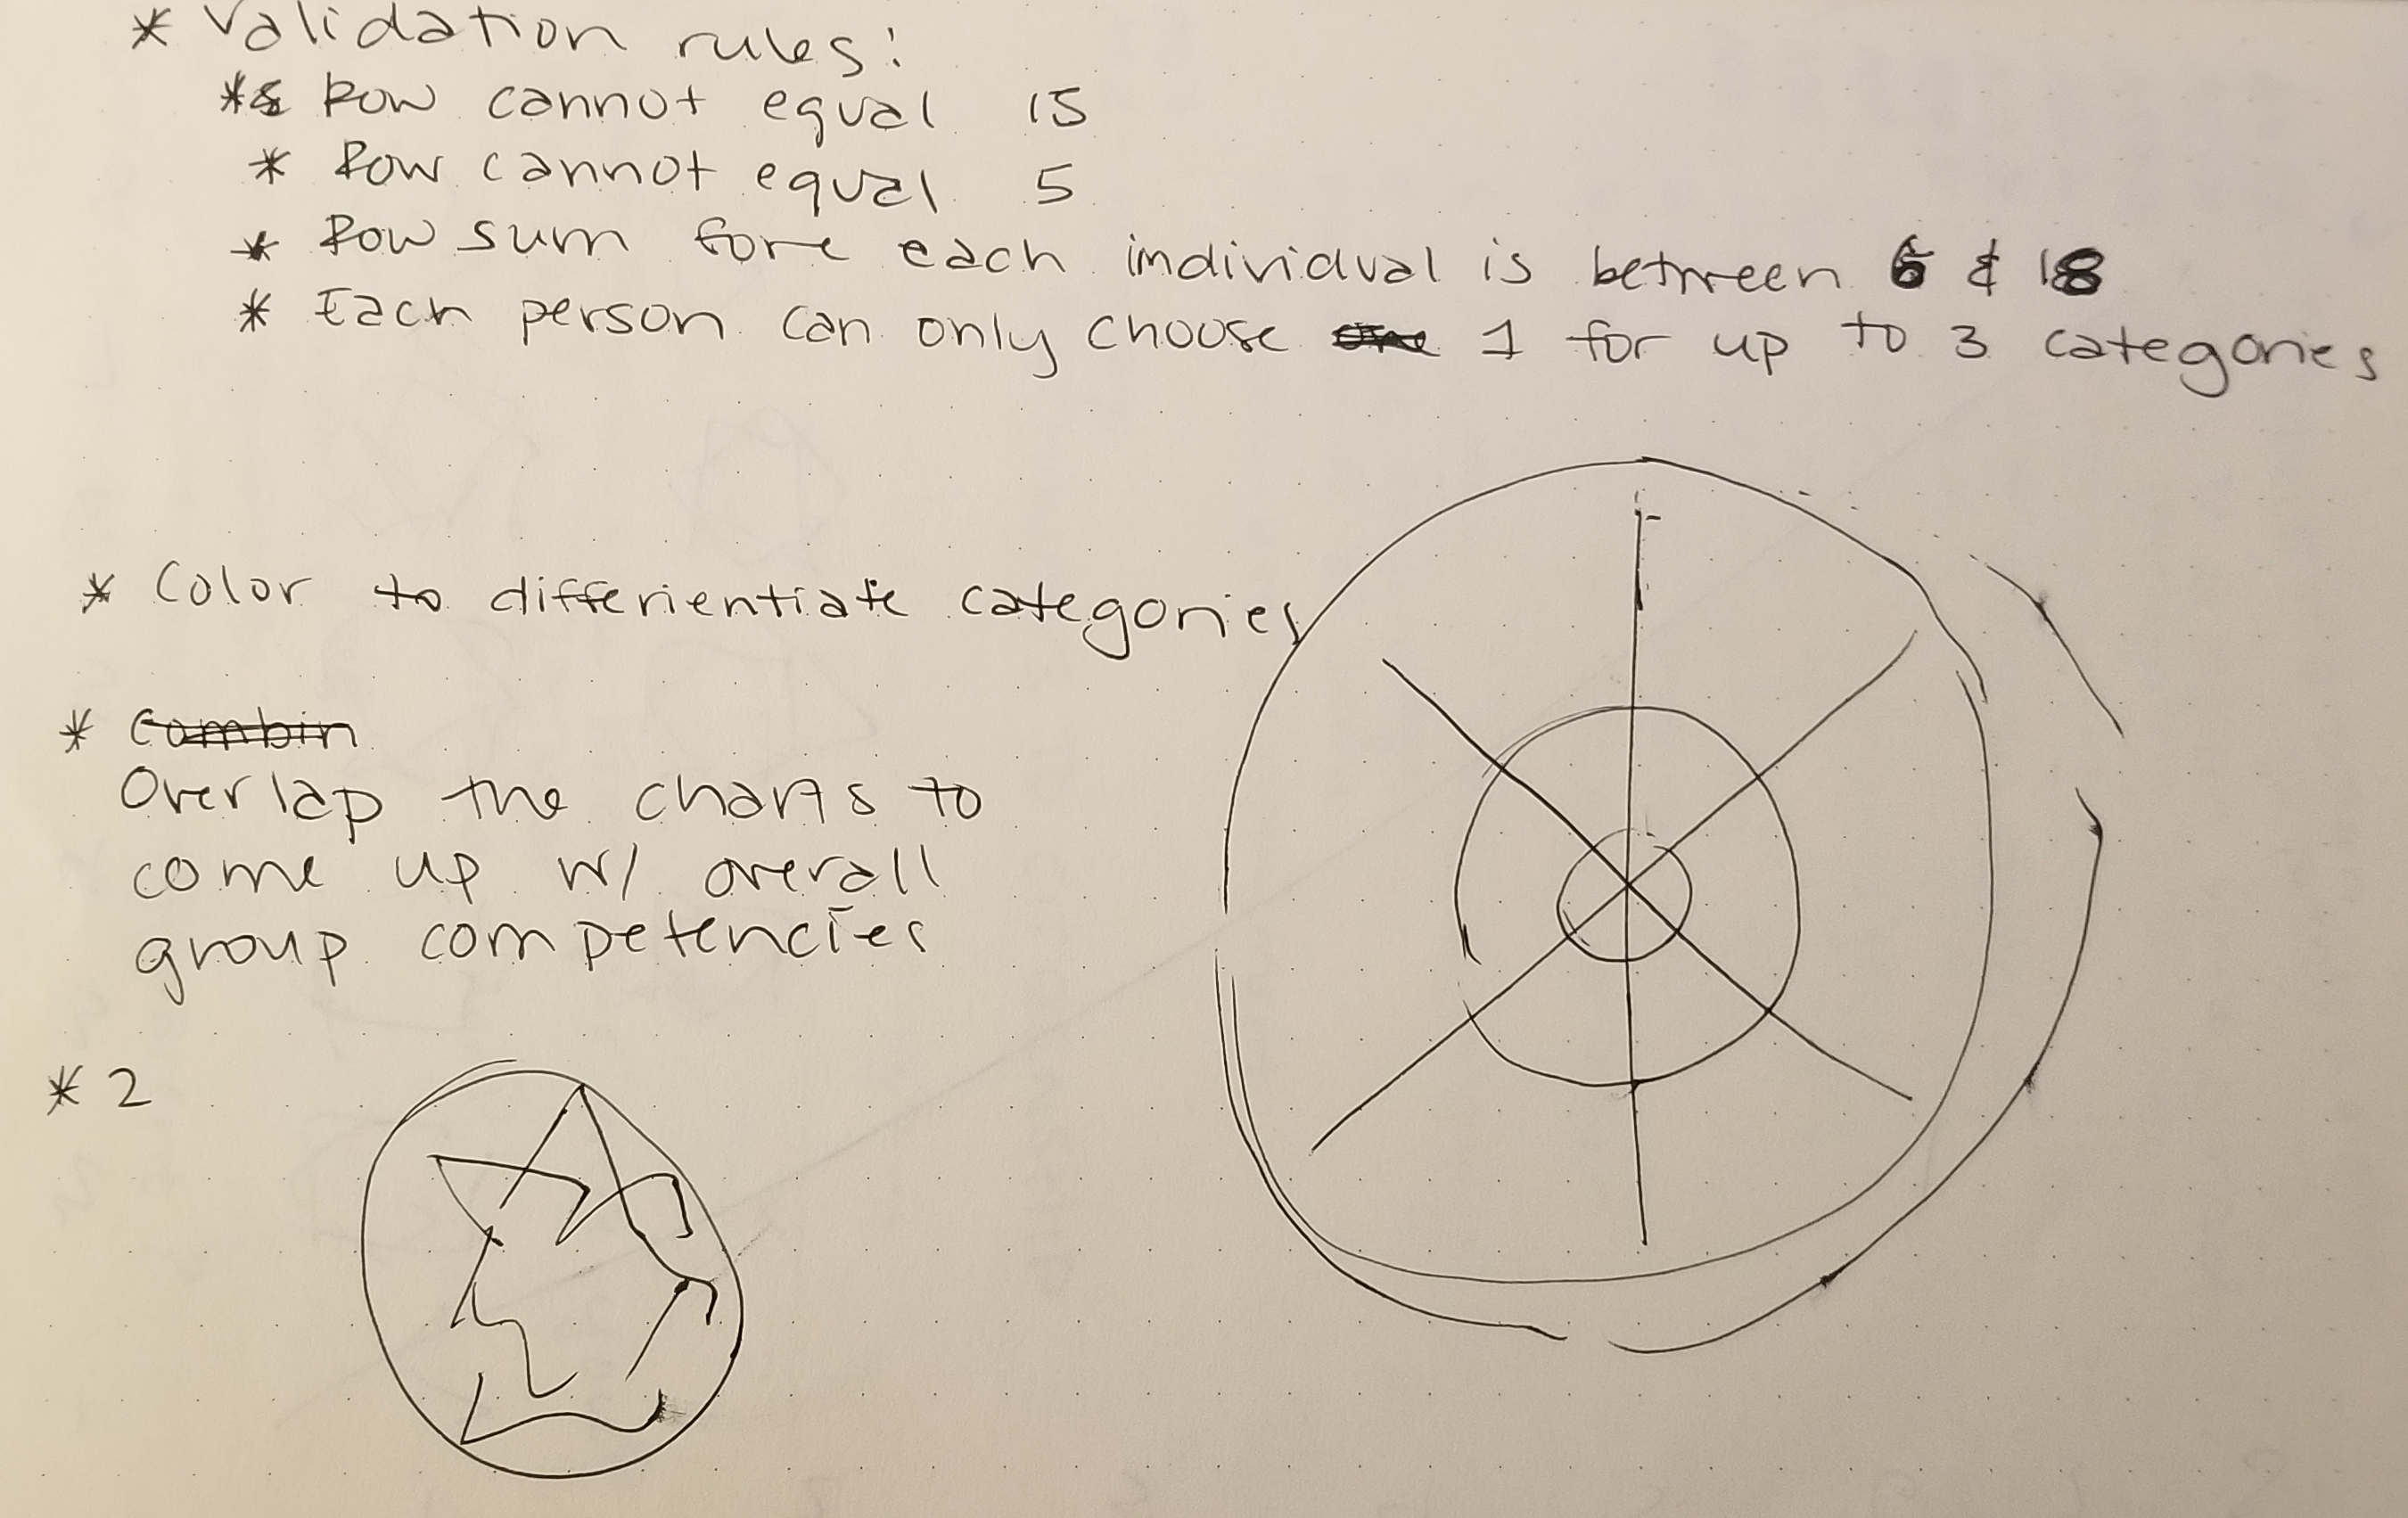 * Validation rules:
* Row cannot equal 15
* Row cannot equal 5
* Row sum fore each individual is between 6 & 18
* Each person can only choose one 1 for up to 3 categories
* Color to differientiate categories
* Combin
Overlap the charts to
come up w/ overall
group competencies
* 2